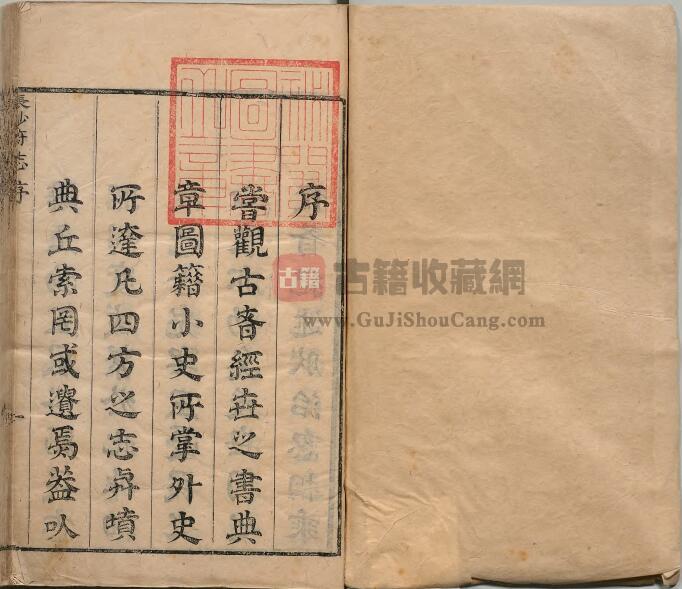 序
嘗觀古㫺經世之書典
章圖籍小史所掌外史
所達凡四方之志與墳
典丘索罔或遺焉葢以
長沙府志序
古籍
古籍收藏網
www.GuJiShouCang.com